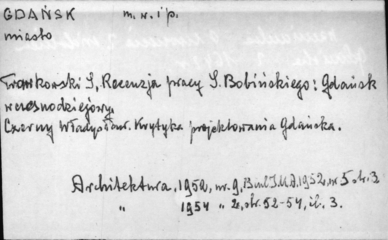 GDAŃSK m. w. i p.
miasto
S, Recenzja pracy S. Bobińskiego: Gdańsk
wczesnodziejowy.
Czerny Władysław. Krytyka projektowania Gdańska.
Architektura, 1952, nr. 9, Biul I.U.A. 1952, nr 5 str. 3
" 1954 " 2, str. 52-54, il. 3.